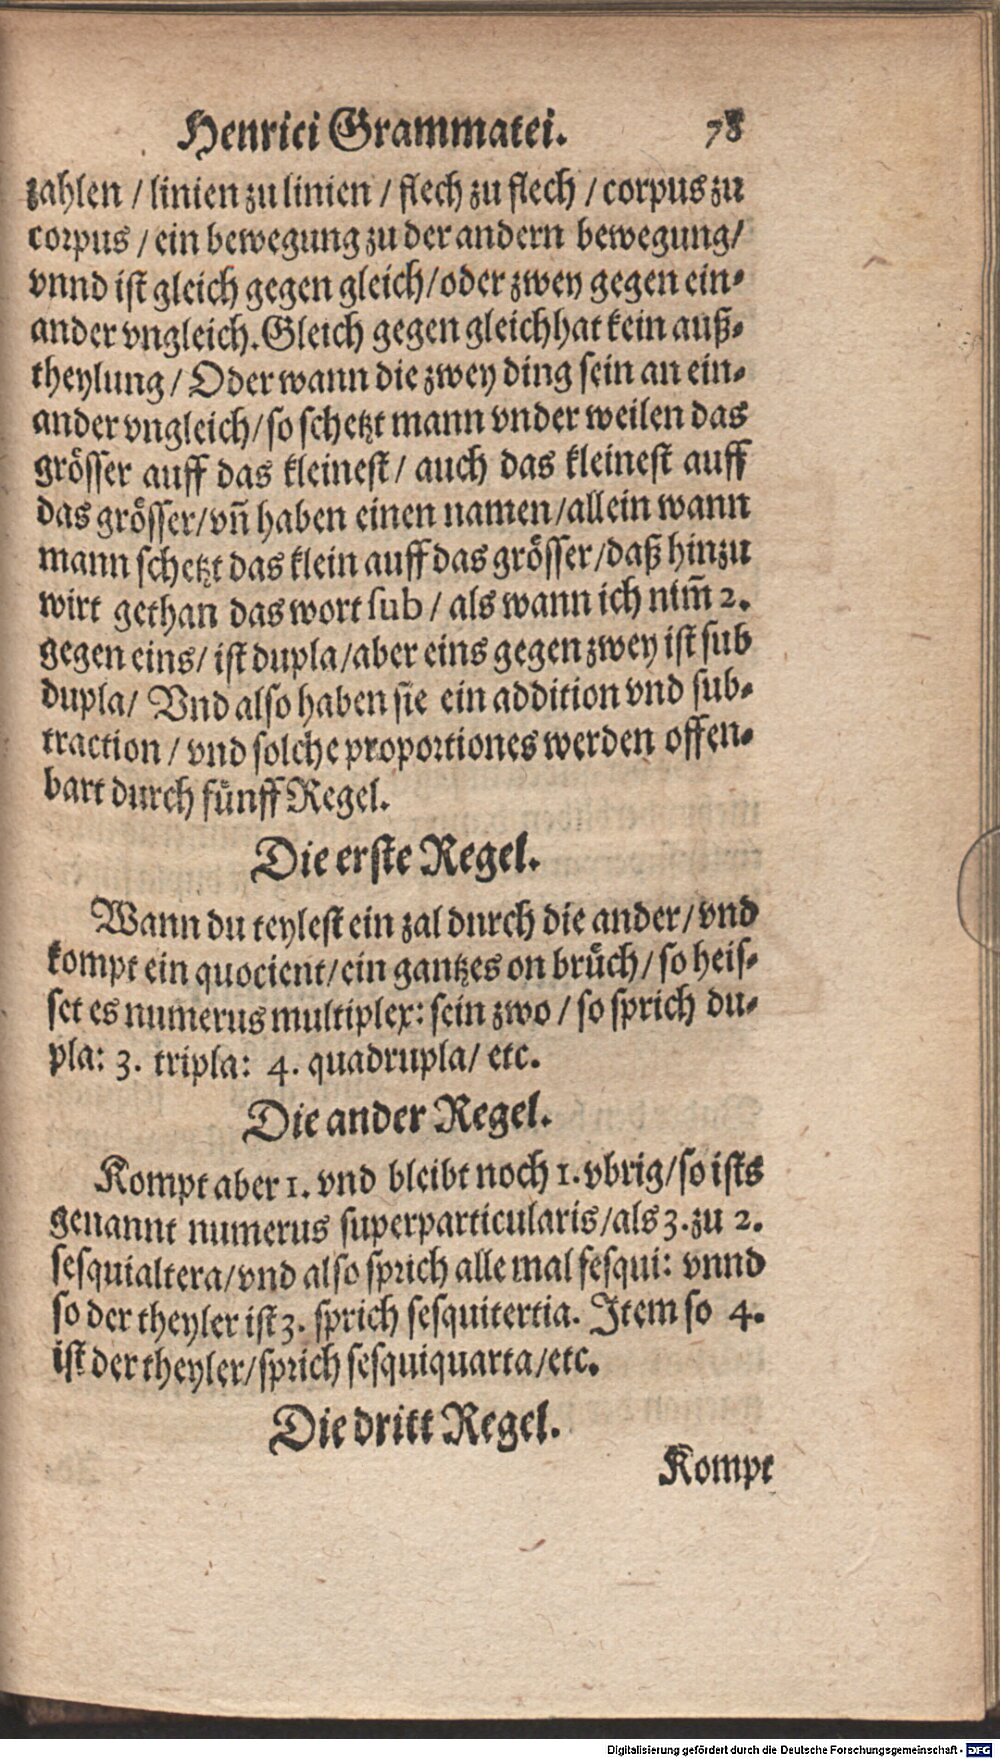 Henrici Grammatei. 78
zahlen / linien zu linien / flech zu flech / corpus zu
corpus / ein bewegung zu der andern bewegung/
vnnd ist gleich gegen gleich/oder zwey gegen ein-
ander vngleich. Gleich gegen gleich hat kein auß-
theylung / Oder wann die zwey ding sein an ein-
ander vngleich/so schetzt mann vnder weilen das
grösser auff das kleinest/ auch das kleinest auff
das grösser/vñ haben einen namen/allein wann
mann schetzt das klein auff das grösser/daß hinzu
wirt gethan das wort sub / als wann ich nim̃ 2.
gegen eins/ ist dupla/aber eins gegen zwey ist sub
dupla/ Vnd also haben sie ein addition vnd sub-
traction / vnd solche proportiones werden offen-
bart durch fünff Regel.
Die erste Regel.
Wann du teylest ein zal durch die ander/vnd
kompt ein quocient/ein gantzes on brůch/so heis-
set es numerus multiplex: sein zwo / so sprich du-
pla: 3. tripla: 4. quadrupla/ etc.
Die ander Regel.
Kompt aber 1. vnd bleibt noch 1. vbrig/so ists
genannt numerus superparticularis/als 3. zu 2.
sesquialtera/vnd also sprich alle mal sesqui: vnnd
so der theyler ist 3. sprich sesquitertia. Item so 4.
ist der theyler/sprich sesquiquarta/etc.
Die dritt Regel.
Kompt
Digitalisierung gefördert durch die Deutsche Forschungsgemeinschaft - DFG